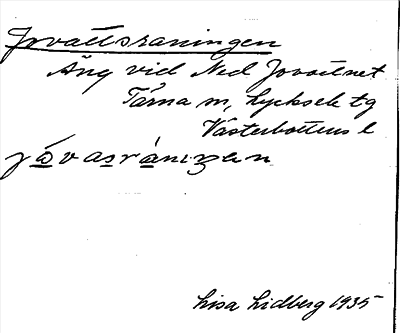 Jovattsraningen
Äng vid Ned Jovattnet
Tärna sn, Lycksele tg
Västerbottens l
jåvasránɩŋen
Lisa Lidberg 1935